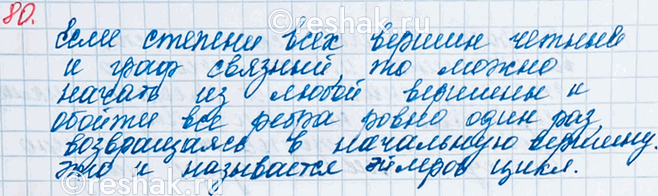 80.
Если степени всех вершин четные
и граф связный, то можно
начать из любой вершины и
обойти все ребра ровно один раз
возвращаясь в начальную вершину.
Это и называется эйлеров цикл.
©reshak.ru